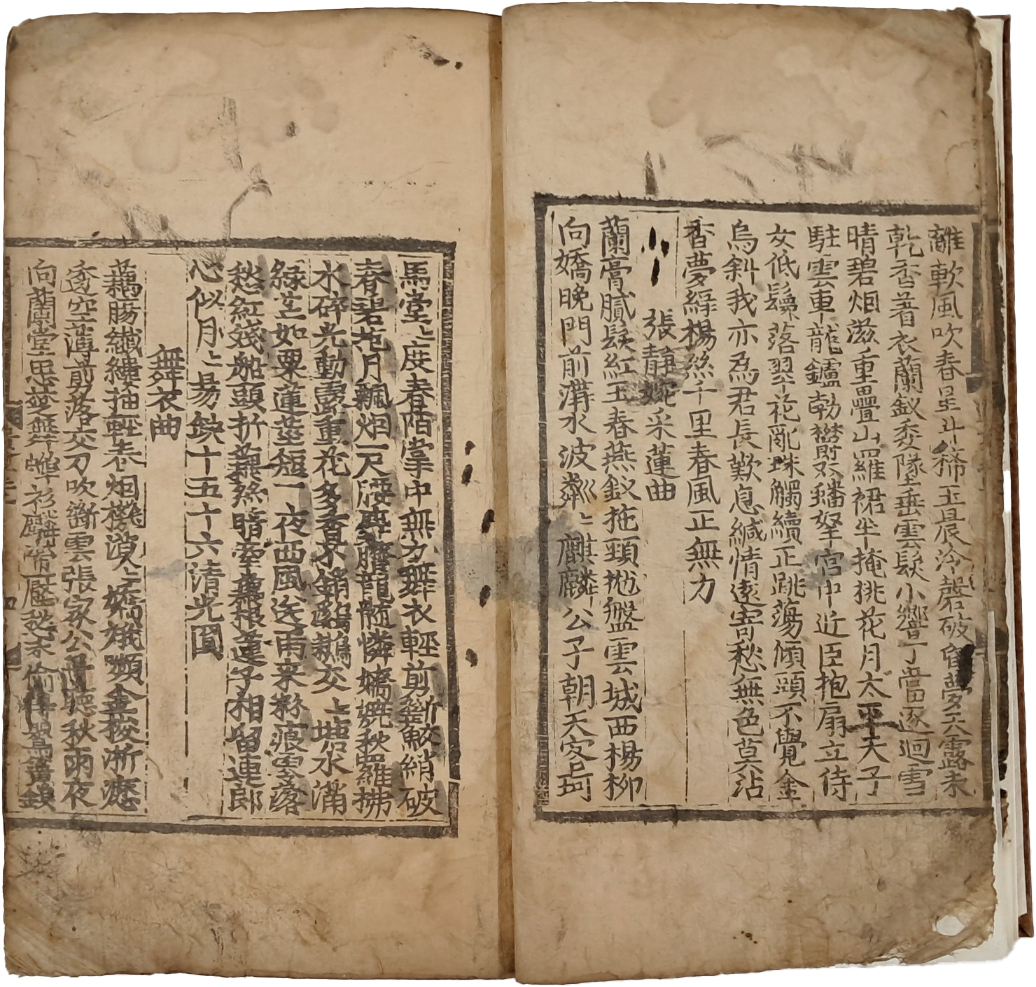 離軟風吹春星斗稀玉晨冷磬破昏夢天露未
乾香著衣蘭釵委墜垂雲髮小響丁當逐迴雪
晴碧烟滋重疊山羅裙半掩桃花月太平天子
駐雲車龍鑪勃鬱雙蟠拏宮中近臣抱扇立侍
女低鬟落翠花亂珠觸續正跳蕩傾頭不覺金
烏斜我亦為君長歎息緘情遠寄愁無色莫沾
香夢綠楊絲千里春風正無力
張靜婉采蓮曲
蘭膏膩髮紅玉春燕釵拖頸抛盤雲城西楊柳
向嬌晚門前溝水波粼〻麒麟公子朝天客珂
馬堂〻度春陌掌中無力舞衣輕剪斷鮫綃破
春碧抱月飄烟一尺腰麝臍龍髓憐嬌嬈秋羅拂
水碎光動露重花多香不銷鸂鶒交〻塘水滿
綠芒如粟蓮莖短一夜西風送雨來粉痕零落
愁紅淺船頭折藕絲暗牽藕根蓮子相留連郎
心似月〻易缺十五十六清光圓
舞衣曲
藕腸纖縷抽輕春烟機漠〻嬌娥嚬金梭淅瀝
透空薄剪落交刀吹斷雲張家公子夜聞秋雨夜
向蘭堂思楚舞蟬衫麟帶壓愁香偷得鶯簧鎖金